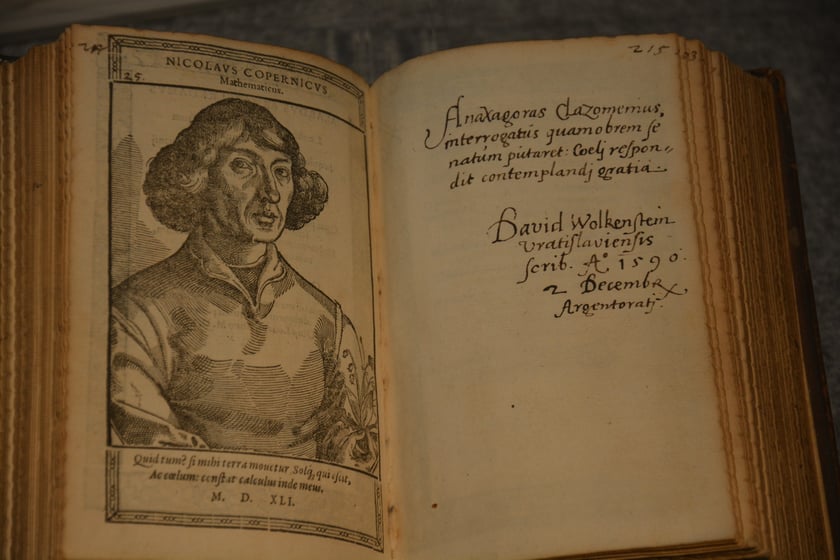 25.
NICOLAVS COPERNICVS
Mathematicus.
Quid tum? si mihi terra mouetur, Solq, quiescit,
Ac cœlum: constat calculus inde meus.
M. D. XLI.
215
Anaxagoras Clazomenius,
interrogatus quamobrem se
natum putaret: Coeli respon„
dit contemplandi gratia.
David Wolkenstein
Vratislaviensis
scrib. A° 1590.
2 Decembr
Argentorati.